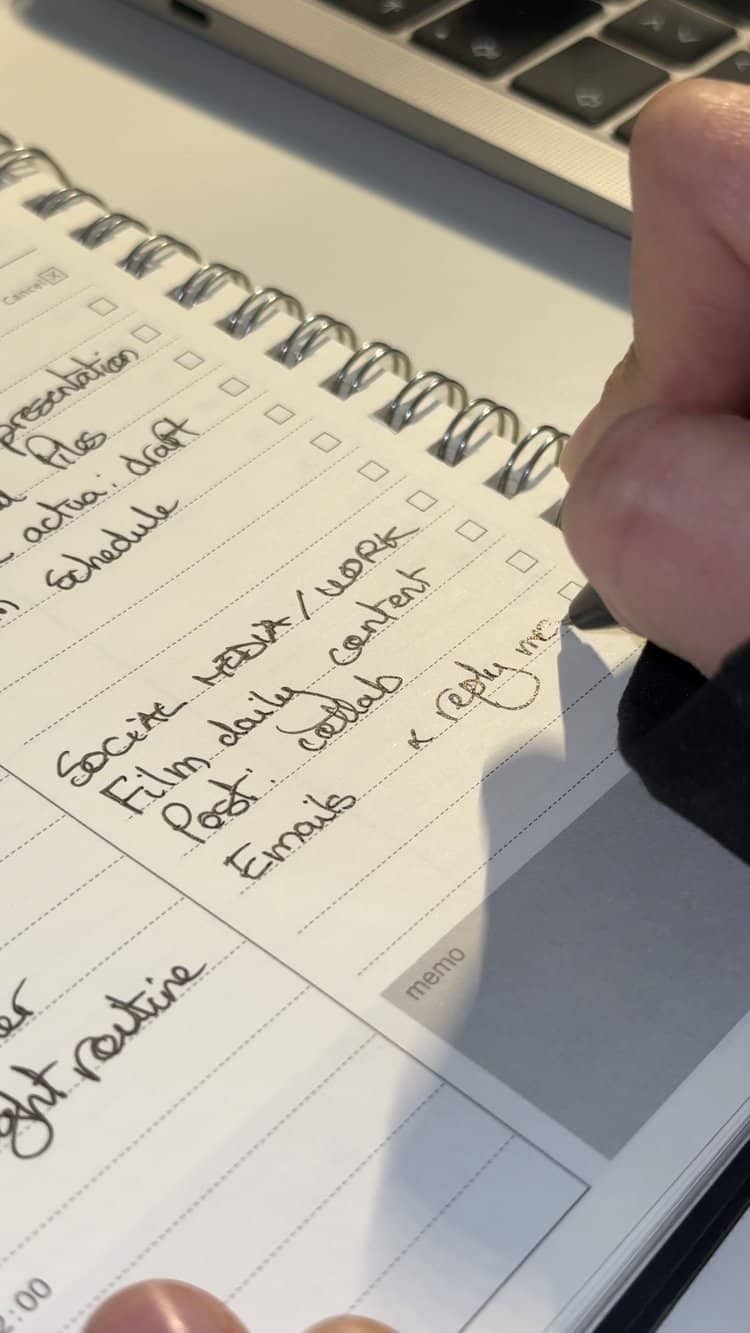 Cancel
presentation
files
draft
schedule
SOCIAL MEDIA / WORK
Film daily content
Post: collab
Emails & reply
memo
routine
:00